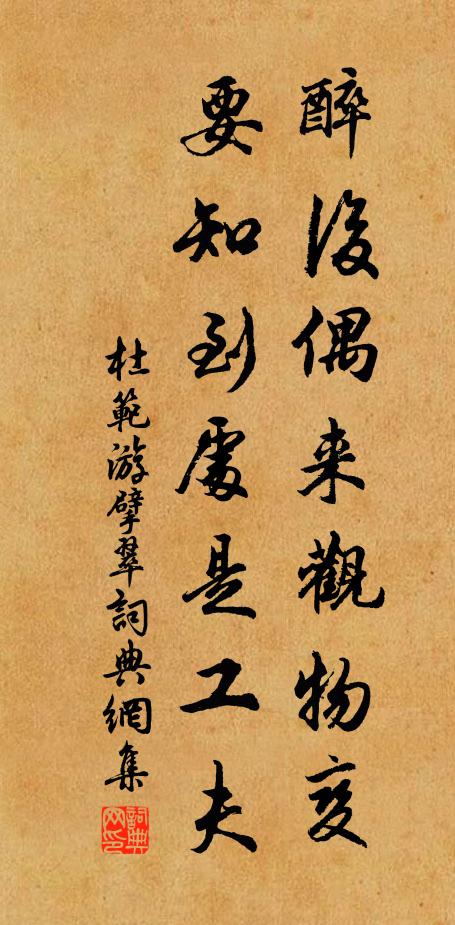 醉後偶来觀物变
要知到處是工夫
杜範游擘翠詞典網集
詞典网印